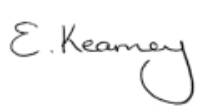 E. Kearney